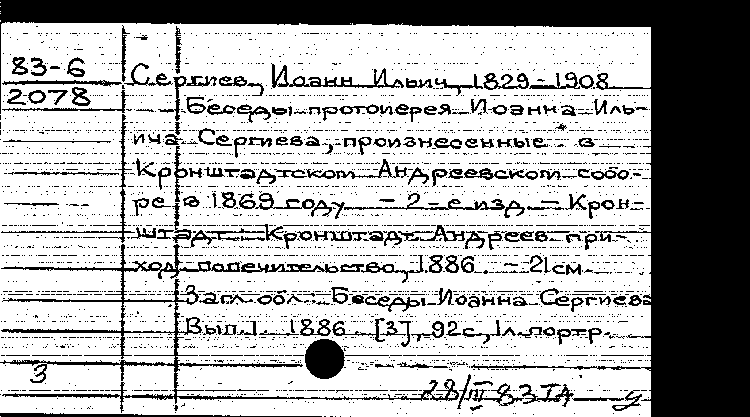 83-6
2078
Сергиев, Иоанн Ильич, 1829-1908
Беседы протоиерея Иоанна Иль-
ича Сергиева, произнесенные в
Кронштадтском Андреевском собо-
ре в 1869 году. - 2-е изд. - Крон-
штадт: Кронштадт. Андреев. при-
ход. попечительство, 1886. - 21см.
Загл. обл.: Беседы Иоанна Сергиева
Вып.1. 1886. [3], 92с., 1л. портр.
3
28/III 83